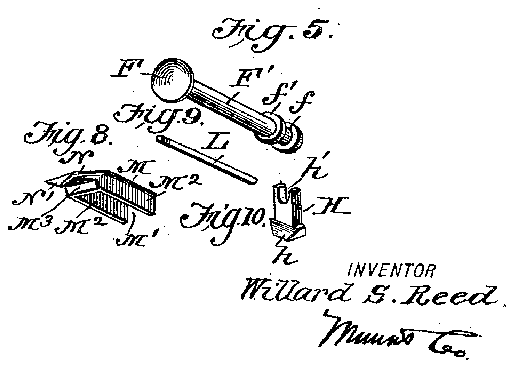 Fig. 5.
F
F'
f'
f
Fig. 9.
L
Fig. 8.
N
M
M²
N'
M³
M²
M'
Fig. 10.
h'
H
h
INVENTOR
Willard S. Reed.
Munn & Co.